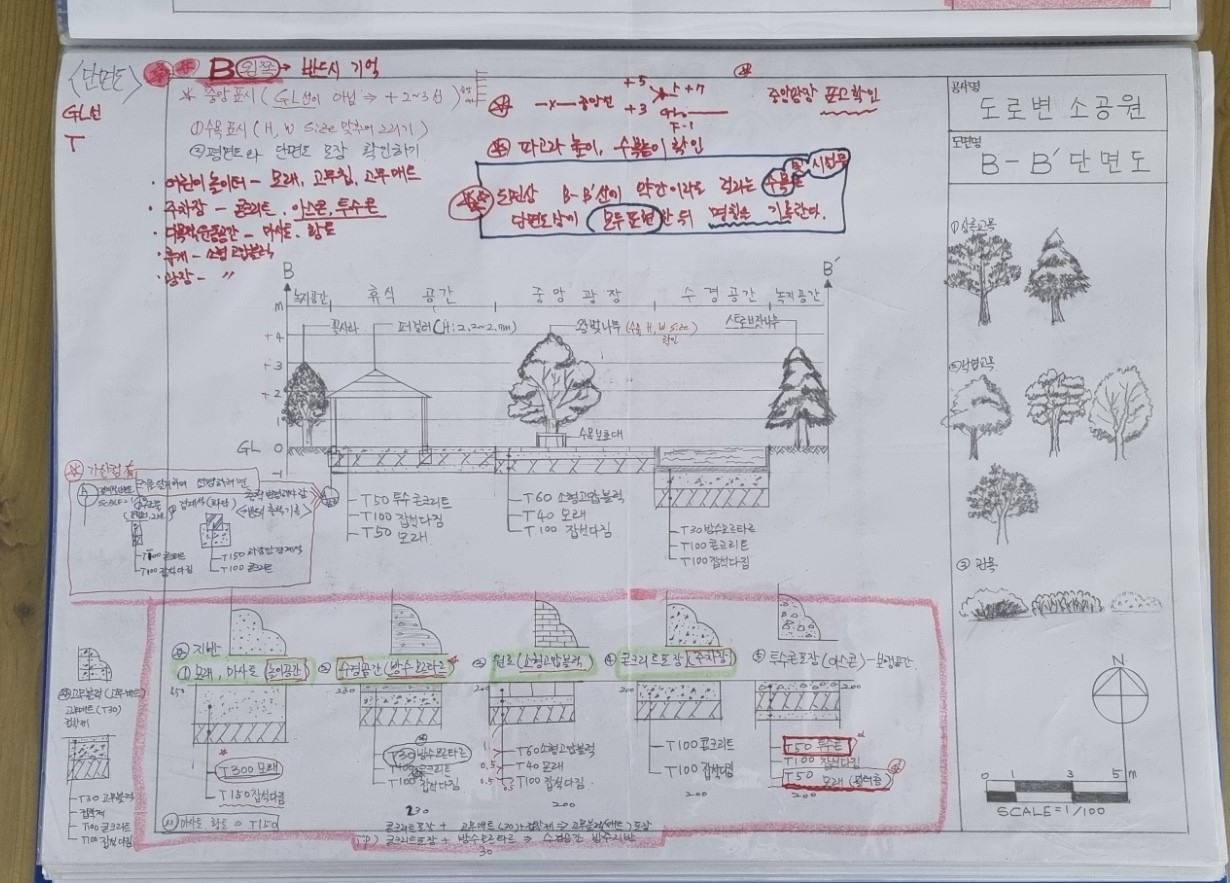 <단면도>
B (왼쪽) → 반드시 기억
GL선
T
* 중앙표시 (GL선이 아님 ⇒ +2~3선)
① 수목표시 (H, W Size 맞추어 그리기)
② 평면도와 단면도 포장 확인하기
중앙선
+5
+3
+7
T-1
중앙광장 포고확인
파고라 높이, 수목높이 확인
· 어린이놀이터 - 모래, 고무칩, 고무매트
· 주차장 - 콘크리트, 아스콘, 투수콘
· 다목적운동공간 - 마사토, 황토
· 휴게 - 소형고압블럭
· 광장 - 〃
도면상 B-B'선이 약간이라도 걸리는 수목 및 시설물
단면도상에 모두 표현한 뒤 명칭을 기록한다.
공사명
도로변 소공원
도면명
B-B' 단면도
① 상록교목
② 낙엽교목
③ 관목
B
B'
녹지공간
휴식 공간
중앙 광장
수경공간
녹지공간
m
꽃사과
퍼걸러(H:2.2~2.7m)
왕벚나무 (수목 H, W Size 확인)
스트로브잣나무
+4
+3
+2
+1
GL 0
-1
수목보호대
T50 투수콘크리트
T100 잡석다짐
T50 모래
T60 소형고압블럭
T40 모래
T100 잡석다짐
T30 방수모르타르
T100 콘크리트
T100 잡석다짐
T100 콘크리트
T100 잡석다짐
T100 콘크리트
지반
① 모래, 마사토 (놀이공간)
② 수경공간 (방수모르타르)
③ 원로 (소형고압블럭)
④ 콘크리트포장 (주차장)
⑤ 투수콘포장 (아스콘) - 보행공간
230
200
200
200
T300 모래
T150 잡석다짐
T30 방수모르타르
T100 콘크리트
T100 잡석다짐
230
T60 소형고압블럭
T40 모래
T100 잡석다짐
200
T100 콘크리트
T100 잡석다짐
200
T50 투수콘
T100 잡석다짐
T50 모래 (필터층)
200
마사토, 황토 = T150
콘크리트포장 + 고무매트(30)+접착제 ⇒ 고무블럭(매트)포장
TIP) 콘크리트포장 + 방수모르타르 ⇒ 수경공간 방수지반
30
고무블럭 (고무매트)
고무매트 (T30)
접착제
T30 고무블럭
접착제
T100 콘크리트
T100 잡석다짐
N
0 1 3 5 m
SCALE=1/100